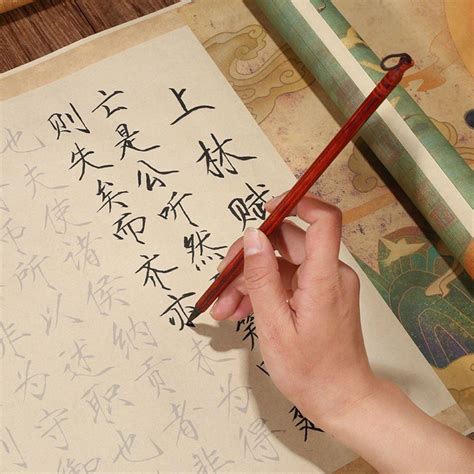 上林赋
亡是公听然笑
则失矣而齐亦未
也夫使诸侯纳贡者非
所以述职也
非为守御